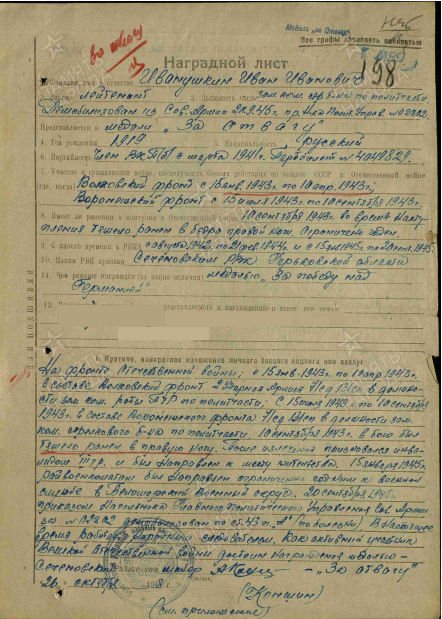 Медаль „за Отвагу"
за отвагу
Все графы заполнять полностью
198
Наградной лист
1. Фамилия, имя и отчество Иванушкин Иван Иванович
2. Звание лейтенант 3. Должность, часть Зам. ком. б-на по политчасти
Демобилизован из Сов. Армии 20.9.45г. пр.
Представляется к медали „За отвагу"
4. Год рождения 1919 5. Национальность русский
6. Партийность Член ВКП(б) с марта 1944г. Партбилет № 4049829.
7. Участие в гражданской войне, последующих боевых действиях по защите СССР и Отечественной войне
(где, когда) Волховский фронт с 15 янв. 1943г. по 10 апр. 1943г;
Воронежский фронт с 15 июля 1943г. по 10 сентября 1943г
8. Имеет ли ранения и контузии в Отечественной войне 10 сентября 1943г. во время насту-
пления тяжело ранен в бедро правой ноги. Ограничено годен.
9. С какого времени в РККА с августа 1942г. по 21 февр. 1944г. и с 15 янв. 1945г. по 20 сент. 1945г.
10. Каким РВК призван Сеченовским РВК Горьковской области
11. Чем ранее награжден (за какие отличия) медалью „За победу над
Германией"
12.
I. Краткое, конкретное изложение личного боевого подвига или заслуг
На фронте Отечественной войны; с 15 янв. 1943г. по 10 апр. 1943г.
в составе Волховский фронт 2 Ударная Армия 71 сд в должнос-
ти зам. ком. роты по политчасти; с 15 июля 1943г. по 10 сентября
1943г. в составе Воронежского фронта 71 сд в должности зам.
ком. стрелкового б-на по политчасти 10 сентября 1943г. в бою был
тяжело ранен в правую ногу. После излечения признавался инва-
лидом III гр. и был направлен к месту жительства. 15 января 1945г.
райвоенкоматом был направлен ограниченно годным к военной
службе в Беломорский Военный округ. 20 сентября 1945г.
приказом Начальника Главного Политического Управления Сов. Армии
за № 02802 демобилизован по ст. 43 п. „А" (по болезни) В настоящее
время работает Народным следователем. Как активный участник
Великой Отечественной войны достоин награждения медалью—
Сеченовский майор — „За отвагу"
26 октября 1948г. (Конышин)
(см. приложение)